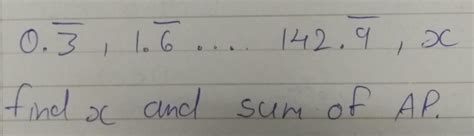 0.3̅ , 1.6̅ .... 142.9̅ , x
find x and sum of AP.